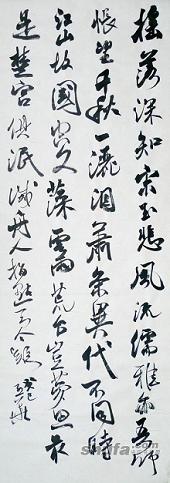 搖落深知宋玉悲風流儒雅亦吾師
悵望千秋一灑淚蕭條異代不同時
江山故國空文藻雲雨荒台豈夢思最
是楚宮俱泯滅舟人指點今疑